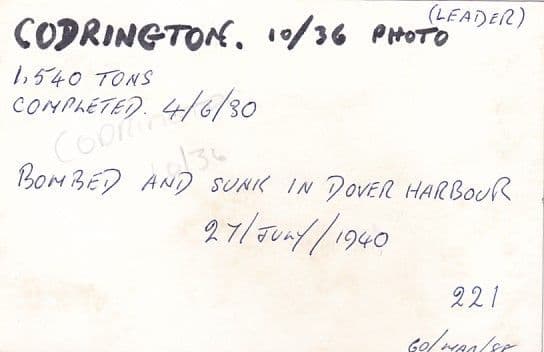 (LEADER)
CODRINGTON. 10/36 PHOTO
1,540 TONS
COMPLETED. 4/6/30
CODRIN
10/36
BOMBED AND SUNK IN DOVER HARBOUR
27/JULY/1940
221